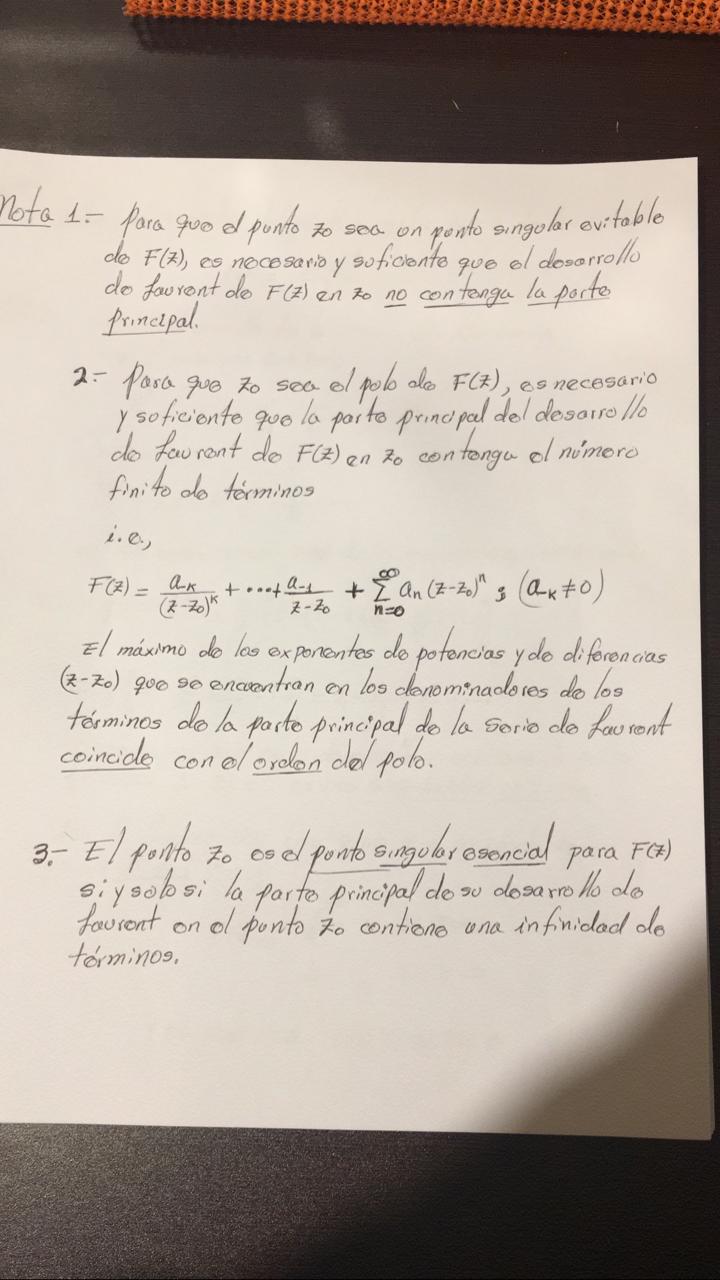 Nota 1.- Para que el punto z₀ sea un punto singular evitable
de F(z), es necesario y suficiente que el desarrollo
de Laurent de F(z) en z₀ no contenga la parte
principal.
2.- Para que z₀ sea el polo de F(z), es necesario
y suficiente que la parte principal del desarrollo
de Laurent de F(z) en z₀ contenga el número
finito de términos
i.e.,
F(z) = a₋ₖ/(z-z₀)ᵏ + ···+ a₋₁/(z-z₀) + ∑_{n=0}^{∞} aₙ(z-z₀)ⁿ ; (a₋ₖ≠0)
El máximo de los exponentes de potencias y de diferencias
(z-z₀) que se encuentran en los denominadores de los
términos de la parte principal de la serie de Laurent
coincide con el orden del polo.
3.- El punto z₀ es el punto singular esencial para F(z)
si y solo si la parte principal de su desarrollo de
Laurent en el punto z₀ contiene una infinidad de
términos.